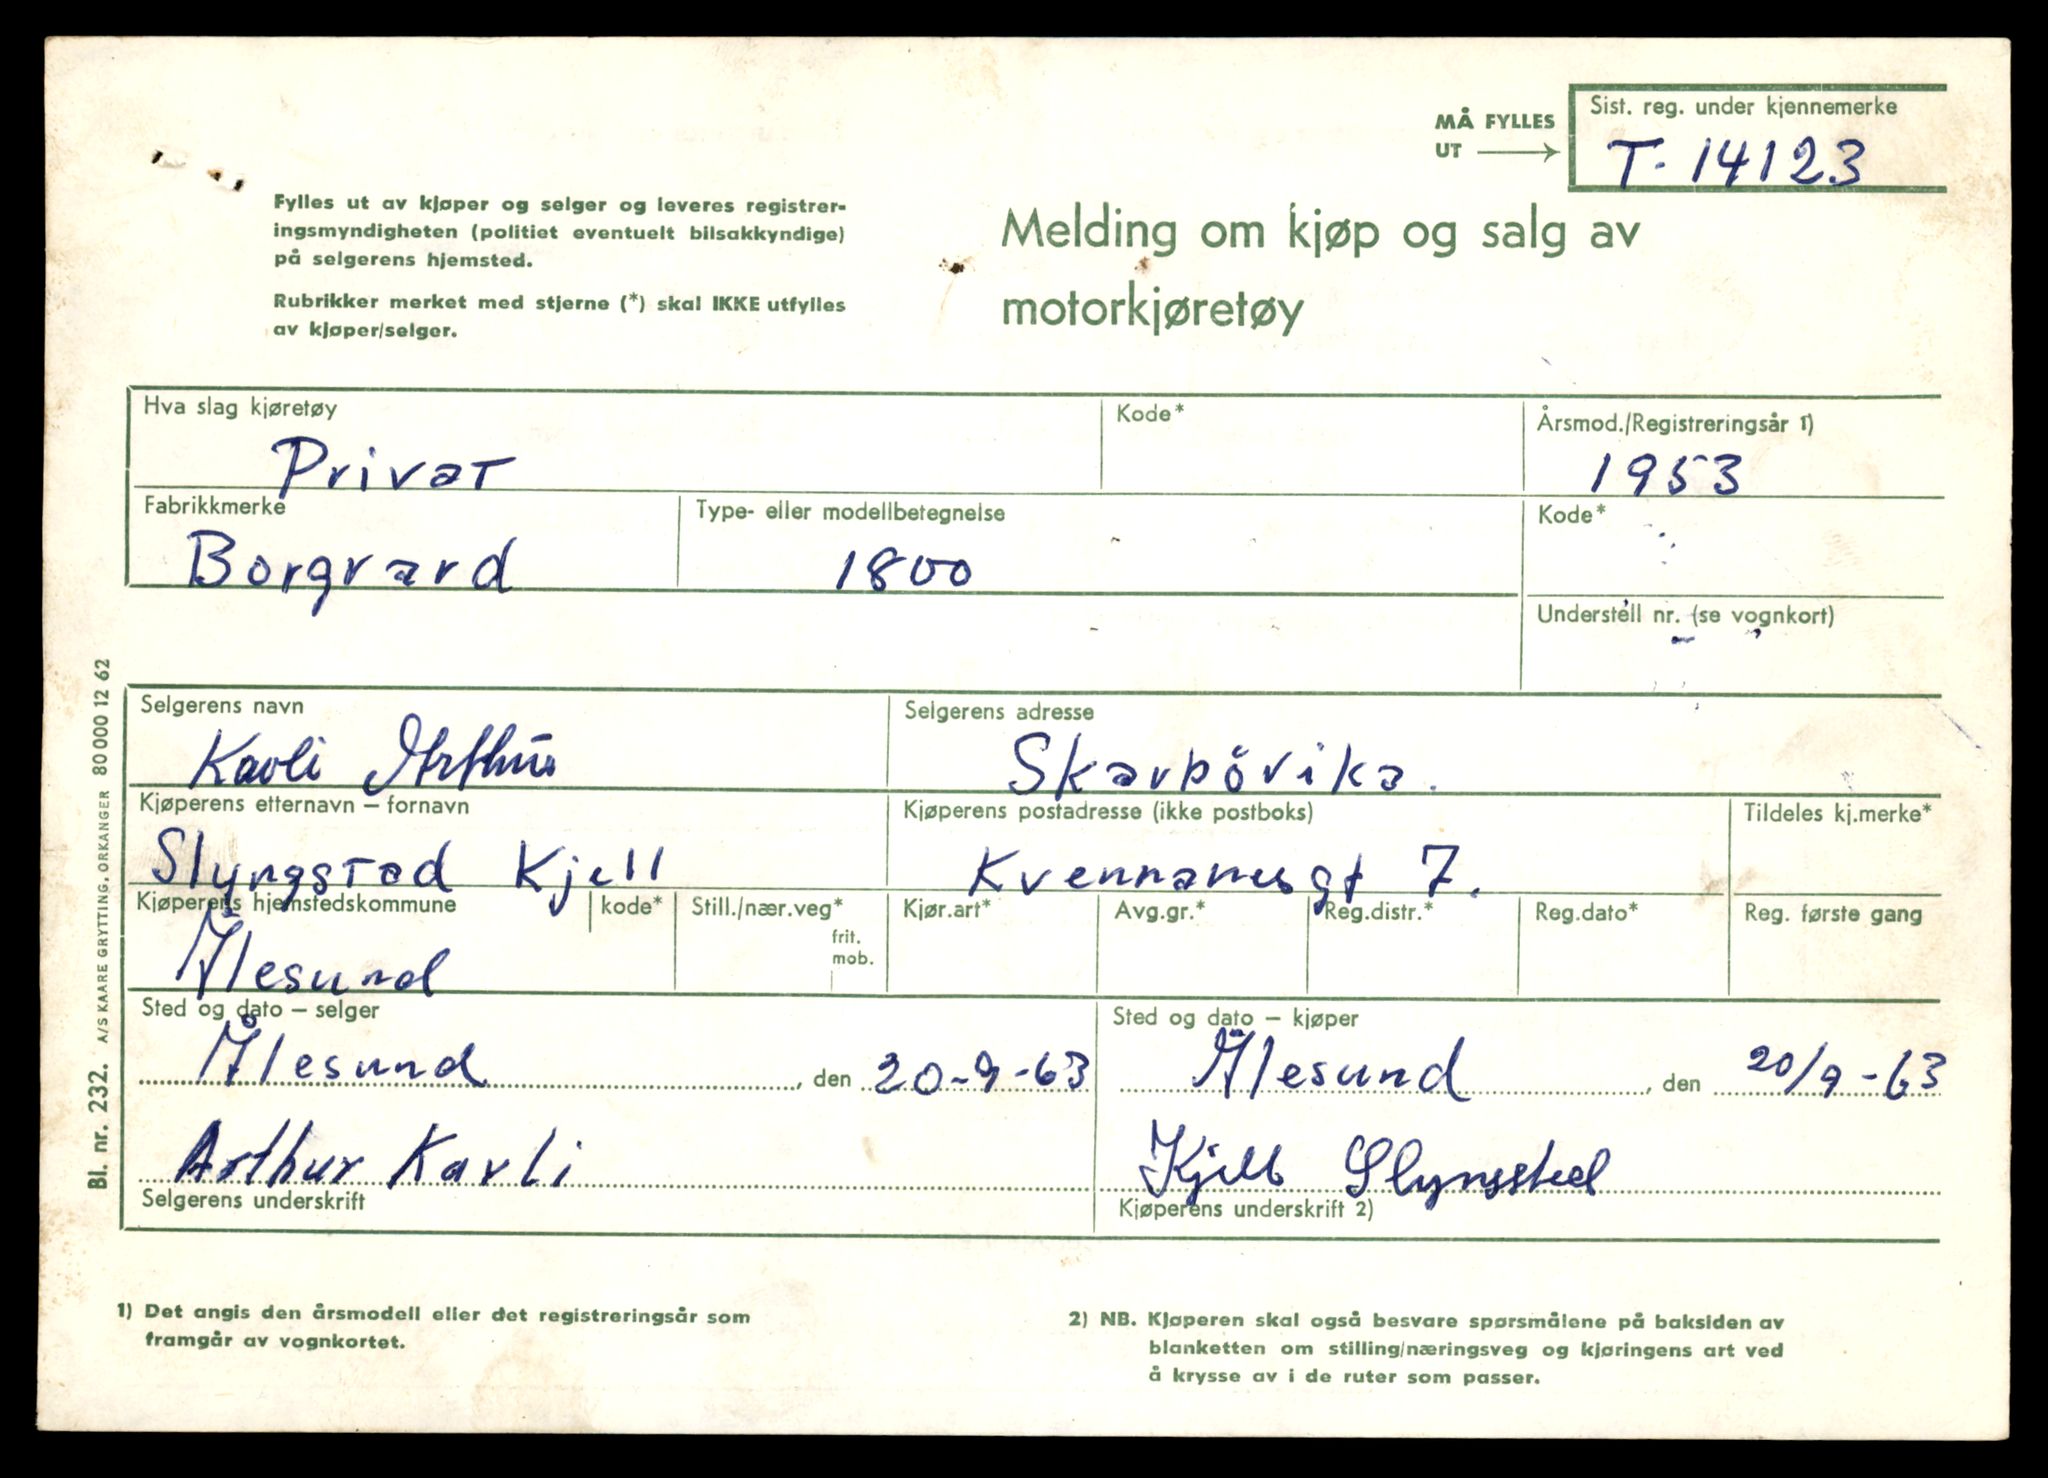 MÅ FYLLES
UT
Sist. reg. under kjennemerke
T- 14123
Fylles ut av kjøper og selger og leveres registrer-
ingsmyndigheten (politiet eventuelt bilsakkyndige)
på selgerens hjemsted.
Rubrikker merket med stjerne (*) skal IKKE utfylles
av kjøper/selger.
Melding om kjøp og salg av
motorkjøretøy
Hva slag kjøretøy
Privat
Kode*
Årsmod./Registreringsår 1)
1953
Fabrikkmerke
Borgvard
Type- eller modellbetegnelse
1800
Kode*
Understell nr. (se vognkort)
Selgerens navn
Kavli Arthur
Selgerens adresse
Skarbövika.
Kjøperens etternavn – fornavn
Slyngstad Kjell
Kjøperens postadresse (ikke postboks)
Kvennanesgt 7.
Tildeles kj.merke*
Kjøperens hjemstedskommune
Ålesund
kode*
Still./nær.veg*
frit.
mob.
Kjør.art*
Avg.gr.*
Reg.distr.*
Reg.dato*
Reg. første gang
Sted og dato – selger
Ålesund, den 20-9-63
Sted og dato – kjøper
Ålesund, den 20/9-63
Arthur Kavli
Selgerens underskrift
Kjell Slyngstad
Kjøperens underskrift 2)
1) Det angis den årsmodell eller det registreringsår som
framgår av vognkortet.
2) NB. Kjøperen skal også besvare spørsmålene på baksiden av
blanketten om stilling/næringsveg og kjøringens art ved
å krysse av i de ruter som passer.
Bl. nr. 232. A/S KAARE GRYTTING, ORKANGER 80 000 12 62